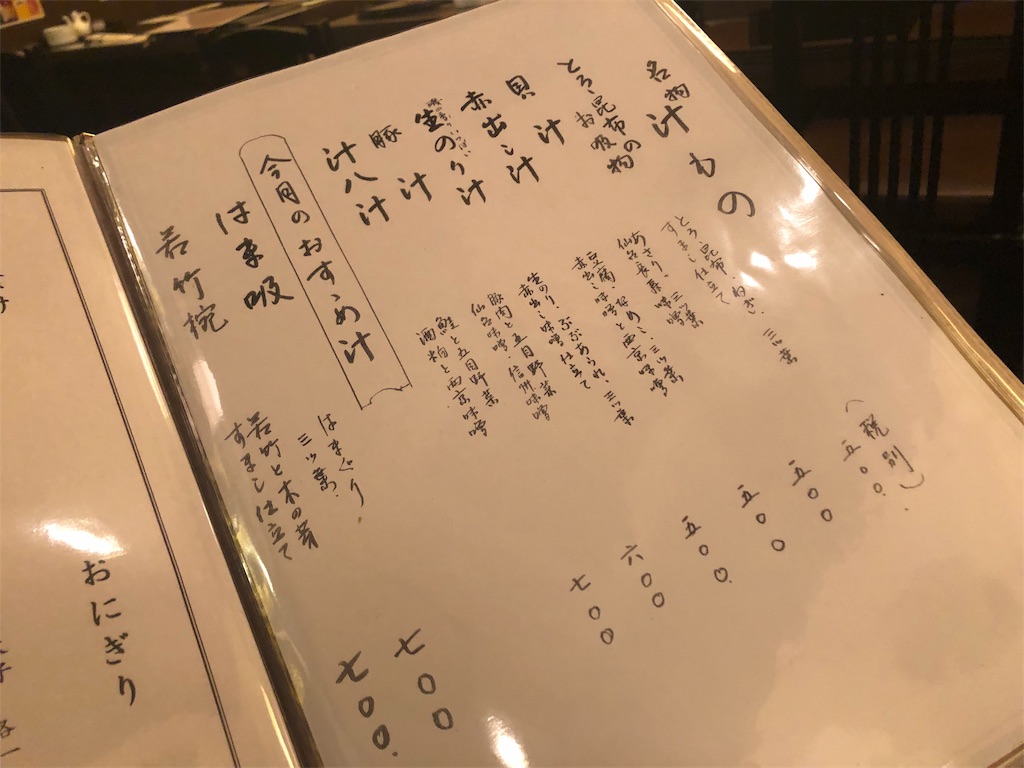 名物汁もの
(税別)
とろ〻昆布のお吸物
とろ〻昆布、ねぎ、三ツ葉
すまし仕立て
五〇〇
貝汁
あさり、
五〇〇
赤出し汁
豆腐、なめこ、三ツ葉
赤出し味噌と西京味噌
五〇〇
生のり汁
生のり、ぶぶあられ、三ツ葉
赤出し味噌仕立て
五〇〇
豚汁
豚肉と五目野菜
仙台味噌、信州味噌
六〇〇
汁八汁
鮭と五目野菜
酒粕と西京味噌
七〇〇
今月のおすゝめ汁
はま吸
はまぐり、
三ツ葉
七〇〇
若竹椀
若竹と木の芽
すまし仕立て
七〇〇
おにぎり